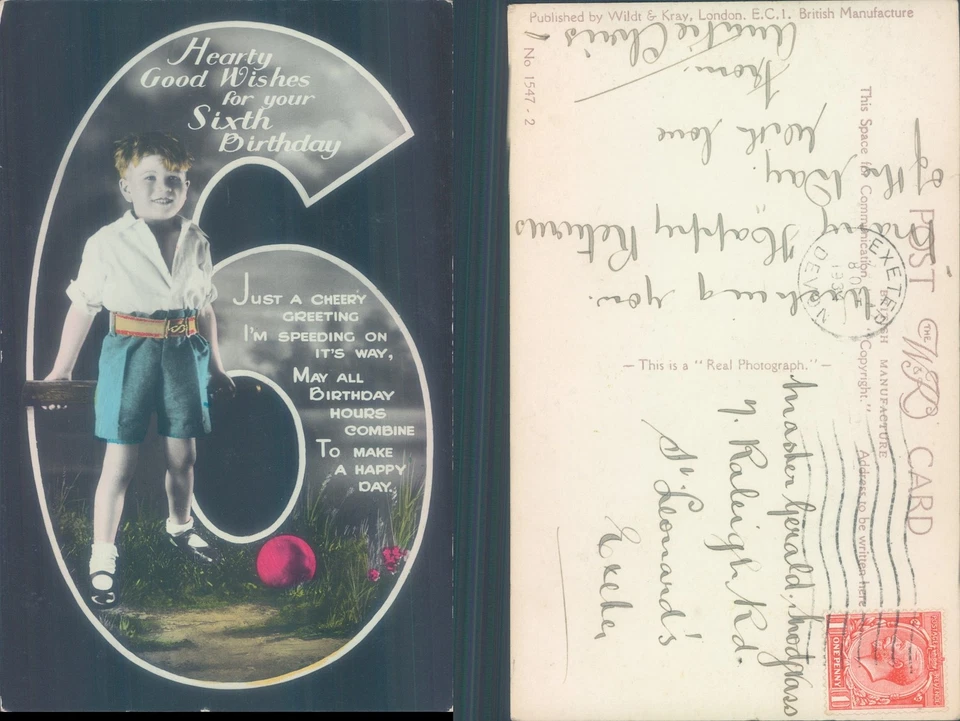 Hearty
Good Wishes
for your
Sixth
Birthday
JUST A CHEERY
GREETING
I'M SPEEDING ON
IT'S WAY,
MAY ALL
BIRTHDAY
HOURS
COMBINE
TO MAKE
A HAPPY
DAY.
Published by Wildt & Kray, London. E.C.1. British Manufacture
No 1547 - 2
POST CARD
THE W&K
BRITISH MANUFACTURE
This Space for Communication
"Copyright."
Address to be written here
— This is a "Real Photograph." —
EXETER
DEVON
Wishing you.
many Happy Returns
of the Day.
With love
from.
Auntie Chris
Master Gerald.
7. Raleigh. Rd.
St. Leonard's
Exeter
POSTAGE
ONE PENNY